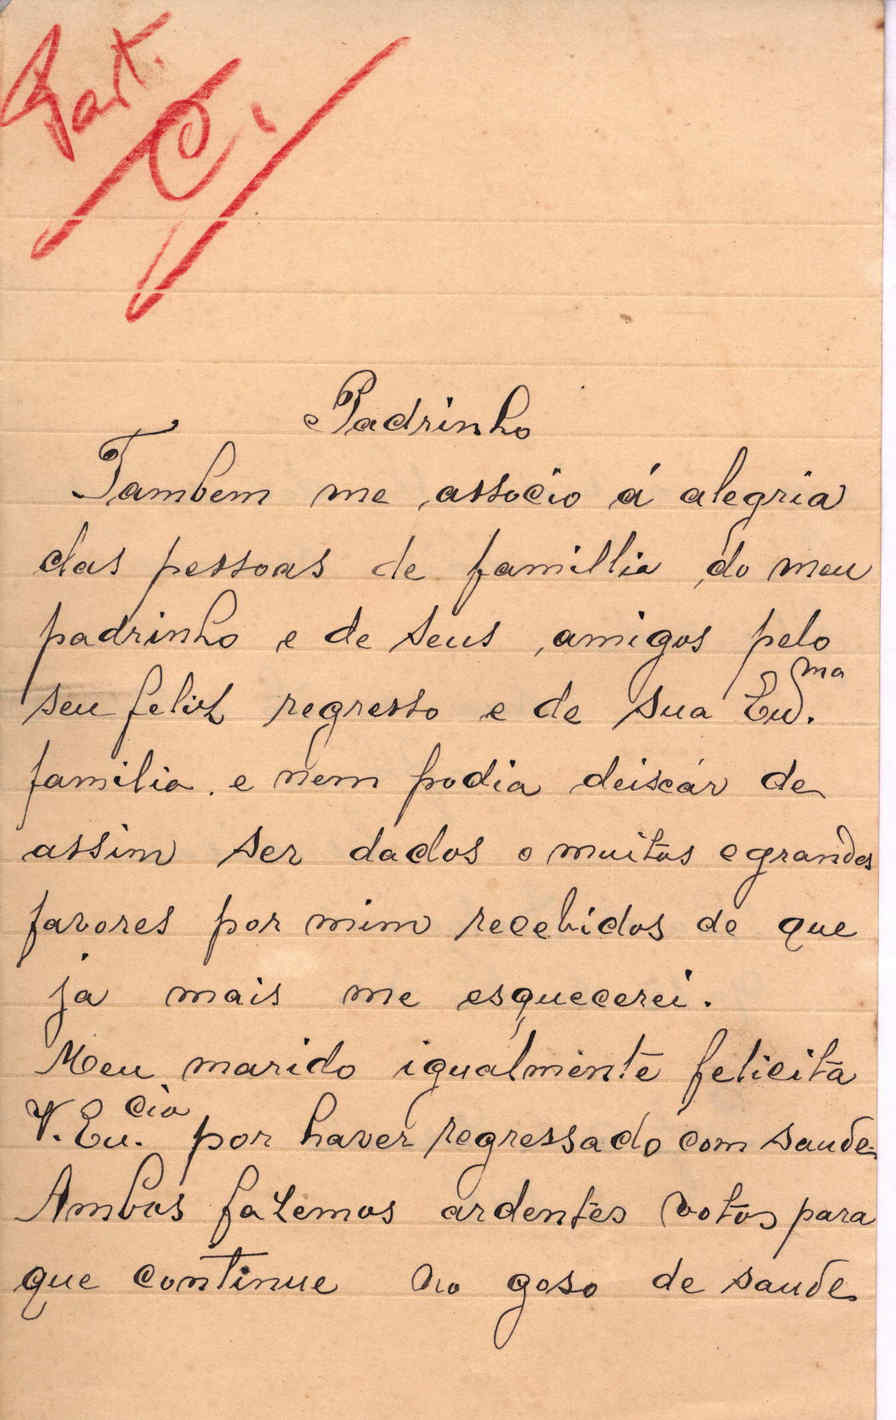 Part.
C.
Padrinho
Tambem me associo á alegria
das pessoas de famillia do meu
padrinho e de seus amigos pelo
seu feliz regresso e de sua Ex.ma
familia. e nem podia deixár de
assim ser dados o muitos e grandes
favores por mim recebidos de que
ja mais me esquecerei.
Meu marido igualmente felicita
V. Ex.cia por haver regressado com saude.
Ambos fazemos ardentes votos para
que continue no goso de saude